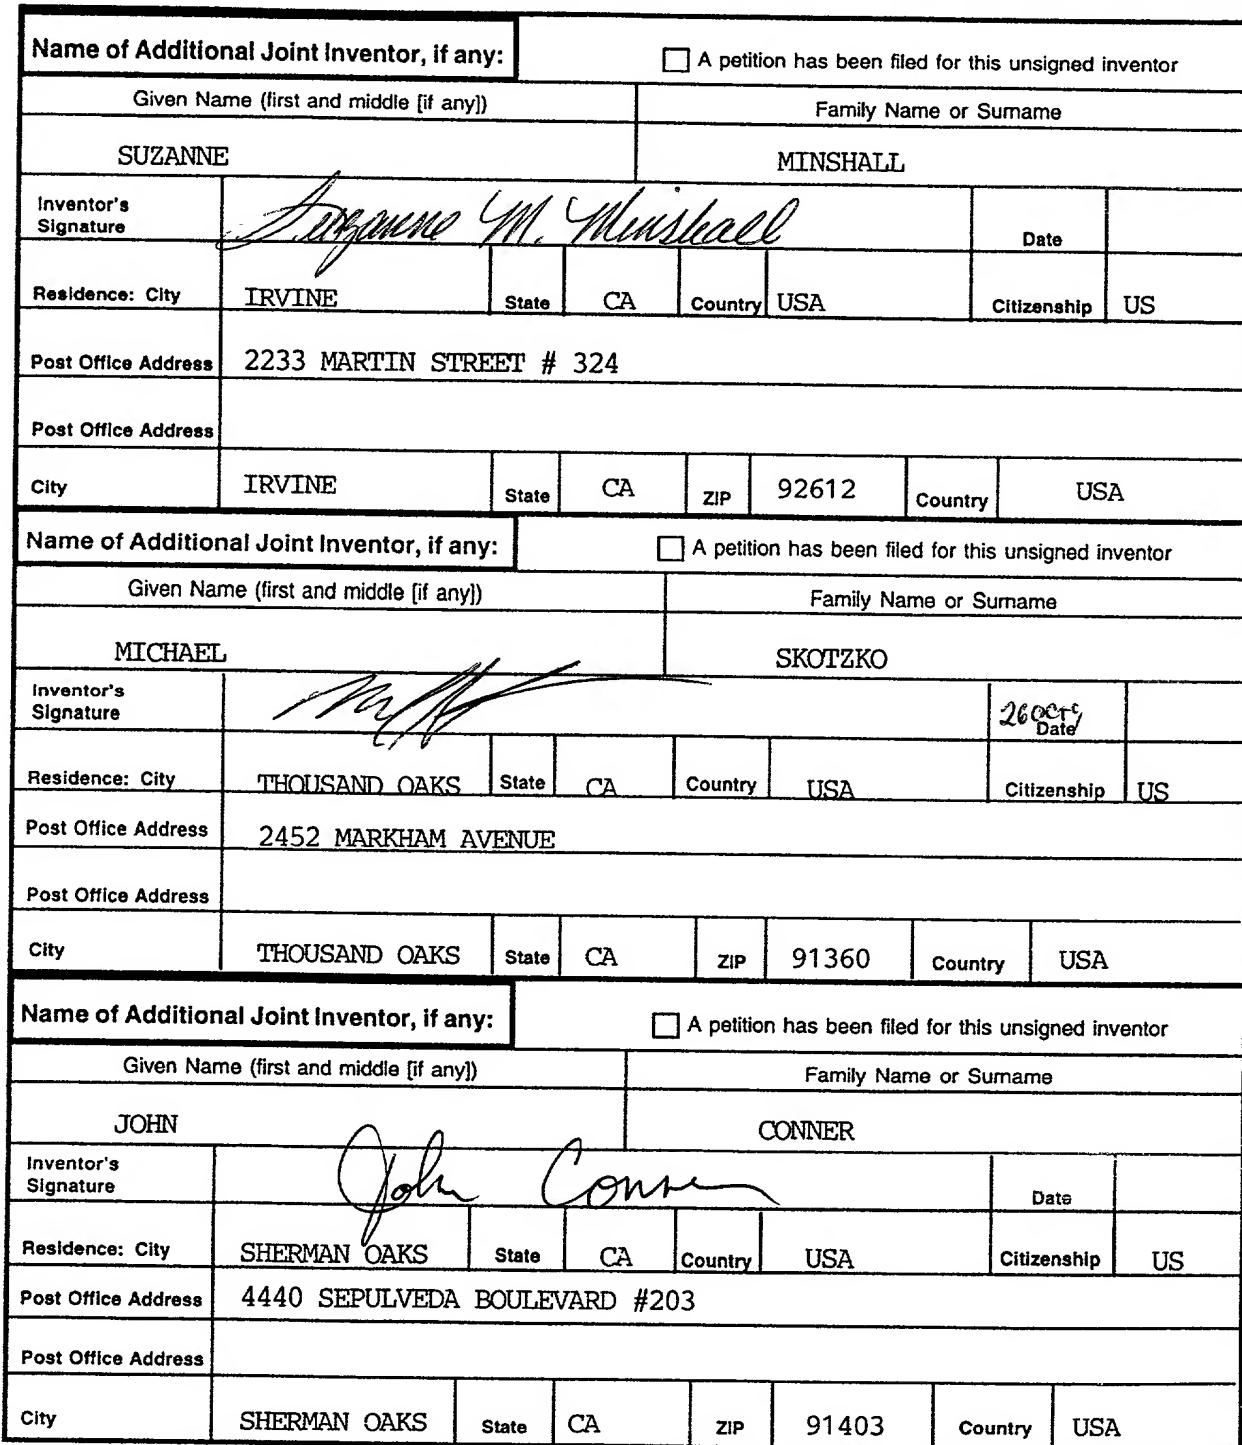 Name of Additional Joint Inventor, if any: A petition has been filed for this unsigned inventor
Given Name (first and middle [if any]) Family Name or Surname
SUZANNE MINSHALL
Inventor's Signature Suzanne M. Minshall Date
Residence: City IRVINE State CA Country USA Citizenship US
Post Office Address 2233 MARTIN STREET # 324
Post Office Address
City IRVINE State CA ZIP 92612 Country USA
Name of Additional Joint Inventor, if any: A petition has been filed for this unsigned inventor
Given Name (first and middle [if any]) Family Name or Surname
MICHAEL SKOTZKO
Inventor's Signature 26 Date
Residence: City THOUSAND OAKS State CA Country USA Citizenship US
Post Office Address 2452 MARKHAM AVENUE
Post Office Address
City THOUSAND OAKS State CA ZIP 91360 Country USA
Name of Additional Joint Inventor, if any: A petition has been filed for this unsigned inventor
Given Name (first and middle [if any]) Family Name or Surname
JOHN CONNER
Inventor's Signature John Conner Date
Residence: City SHERMAN OAKS State CA Country USA Citizenship US
Post Office Address 4440 SEPULVEDA BOULEVARD #203
Post Office Address
City SHERMAN OAKS State CA ZIP 91403 Country USA